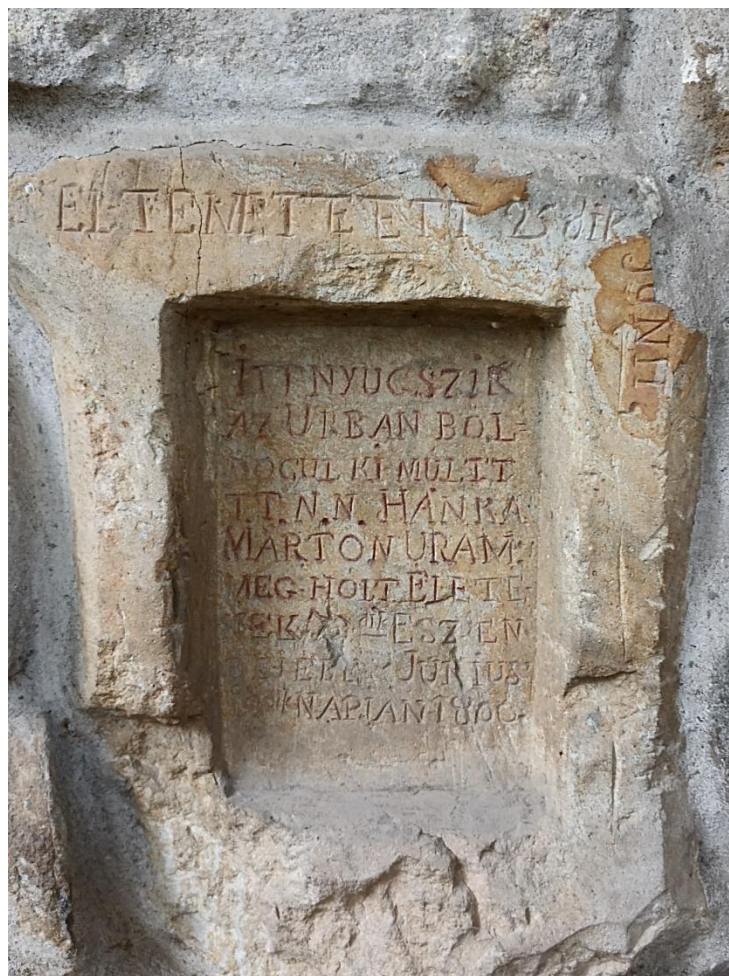 ELTEMETTETETT 25dik
JUNII
ITT NYUGSZIK
AZ URBAN BOL=
DOGUL KI MULTT
T.T.N.N. HANKA
MARTON URAM.
MEG HOLT ELETE=
ESZ EN
JUNIUS
NAPIAN 1806.